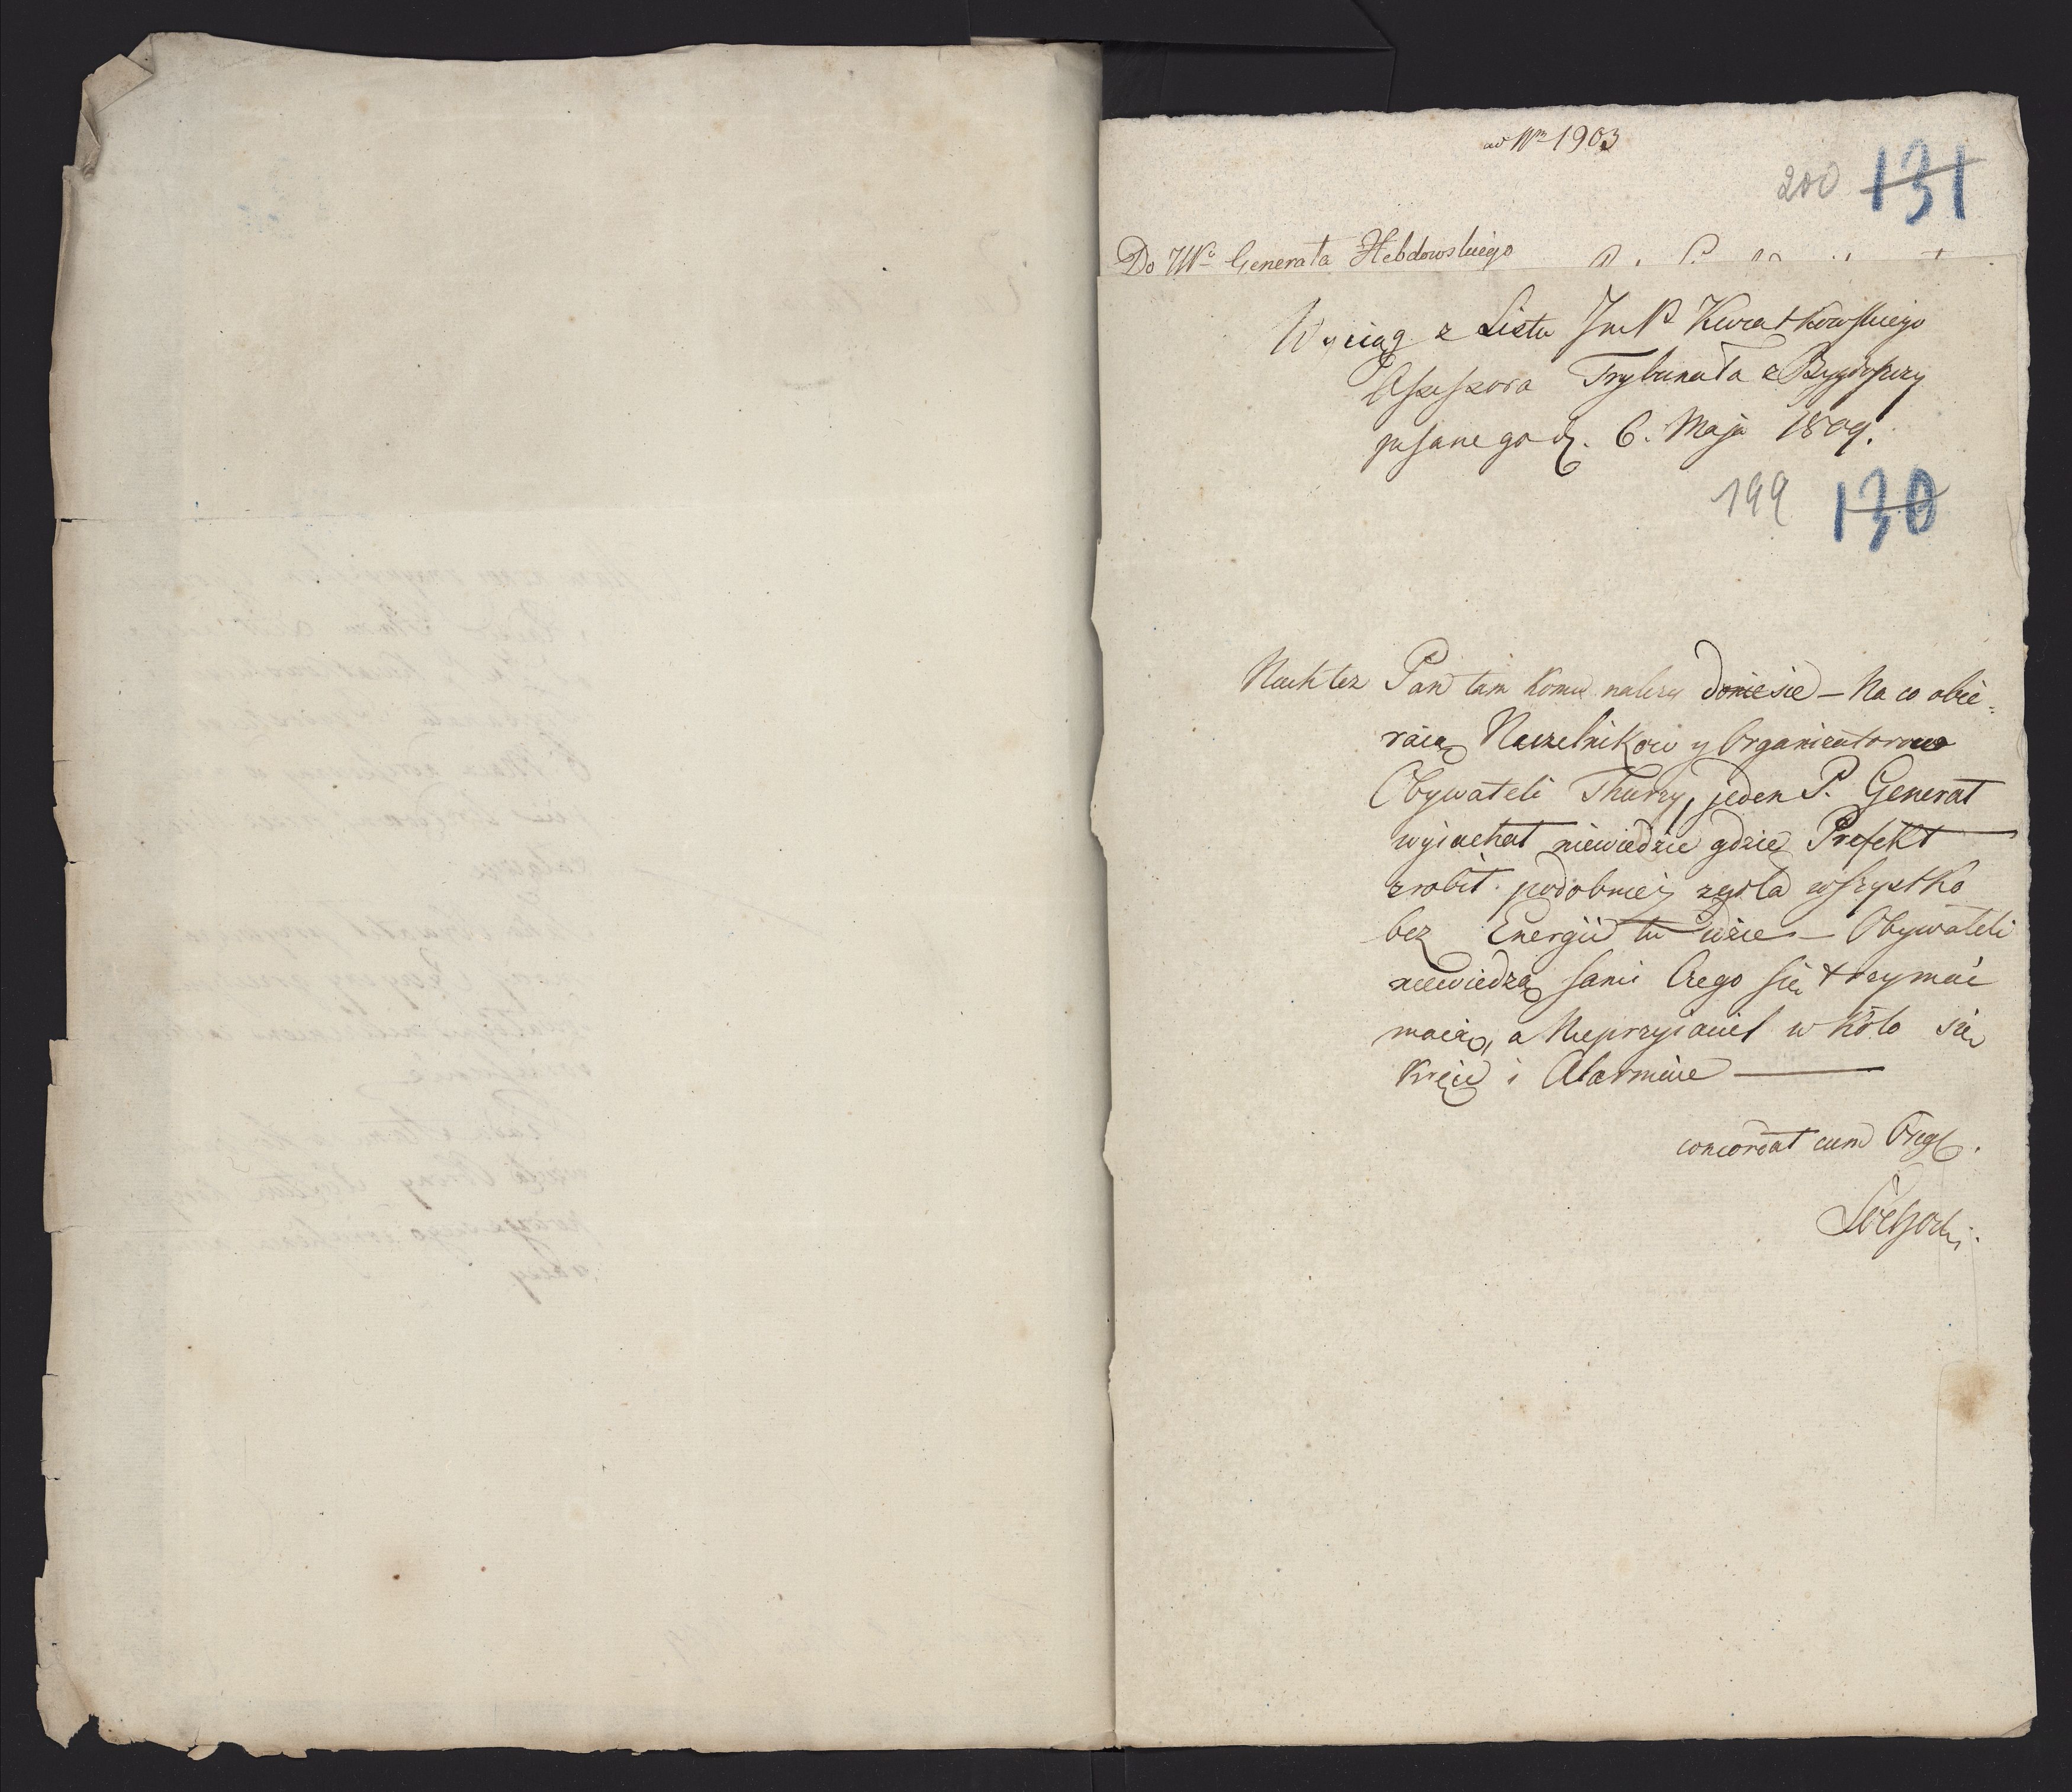 ad Nrm 1903
200 131
Do JWo Generała Hebdowskiego
Wyciąg z Listu JmP Kwiatkowskiego
Assessora Trybunała z Bydgoszczy
pisanego d. 6. Maja 1809.
199 130
Niech tez Pan tam komu nalezy doniesie – Na co obie=
raią Naczelnikow y Organizatorow
Obywateli Thurzy, jeden P. Generał
wyiachał niewiedzie gdzie Prefekt
zrobił podobniez zgoła wszystko
bez Energii tu idzie – Obywateli
niewiedzą sami Czego się trzymać
maią, a Nieprzyiaciel w koło się
kręci i Alarmuie ———
concordat cum Orgl.